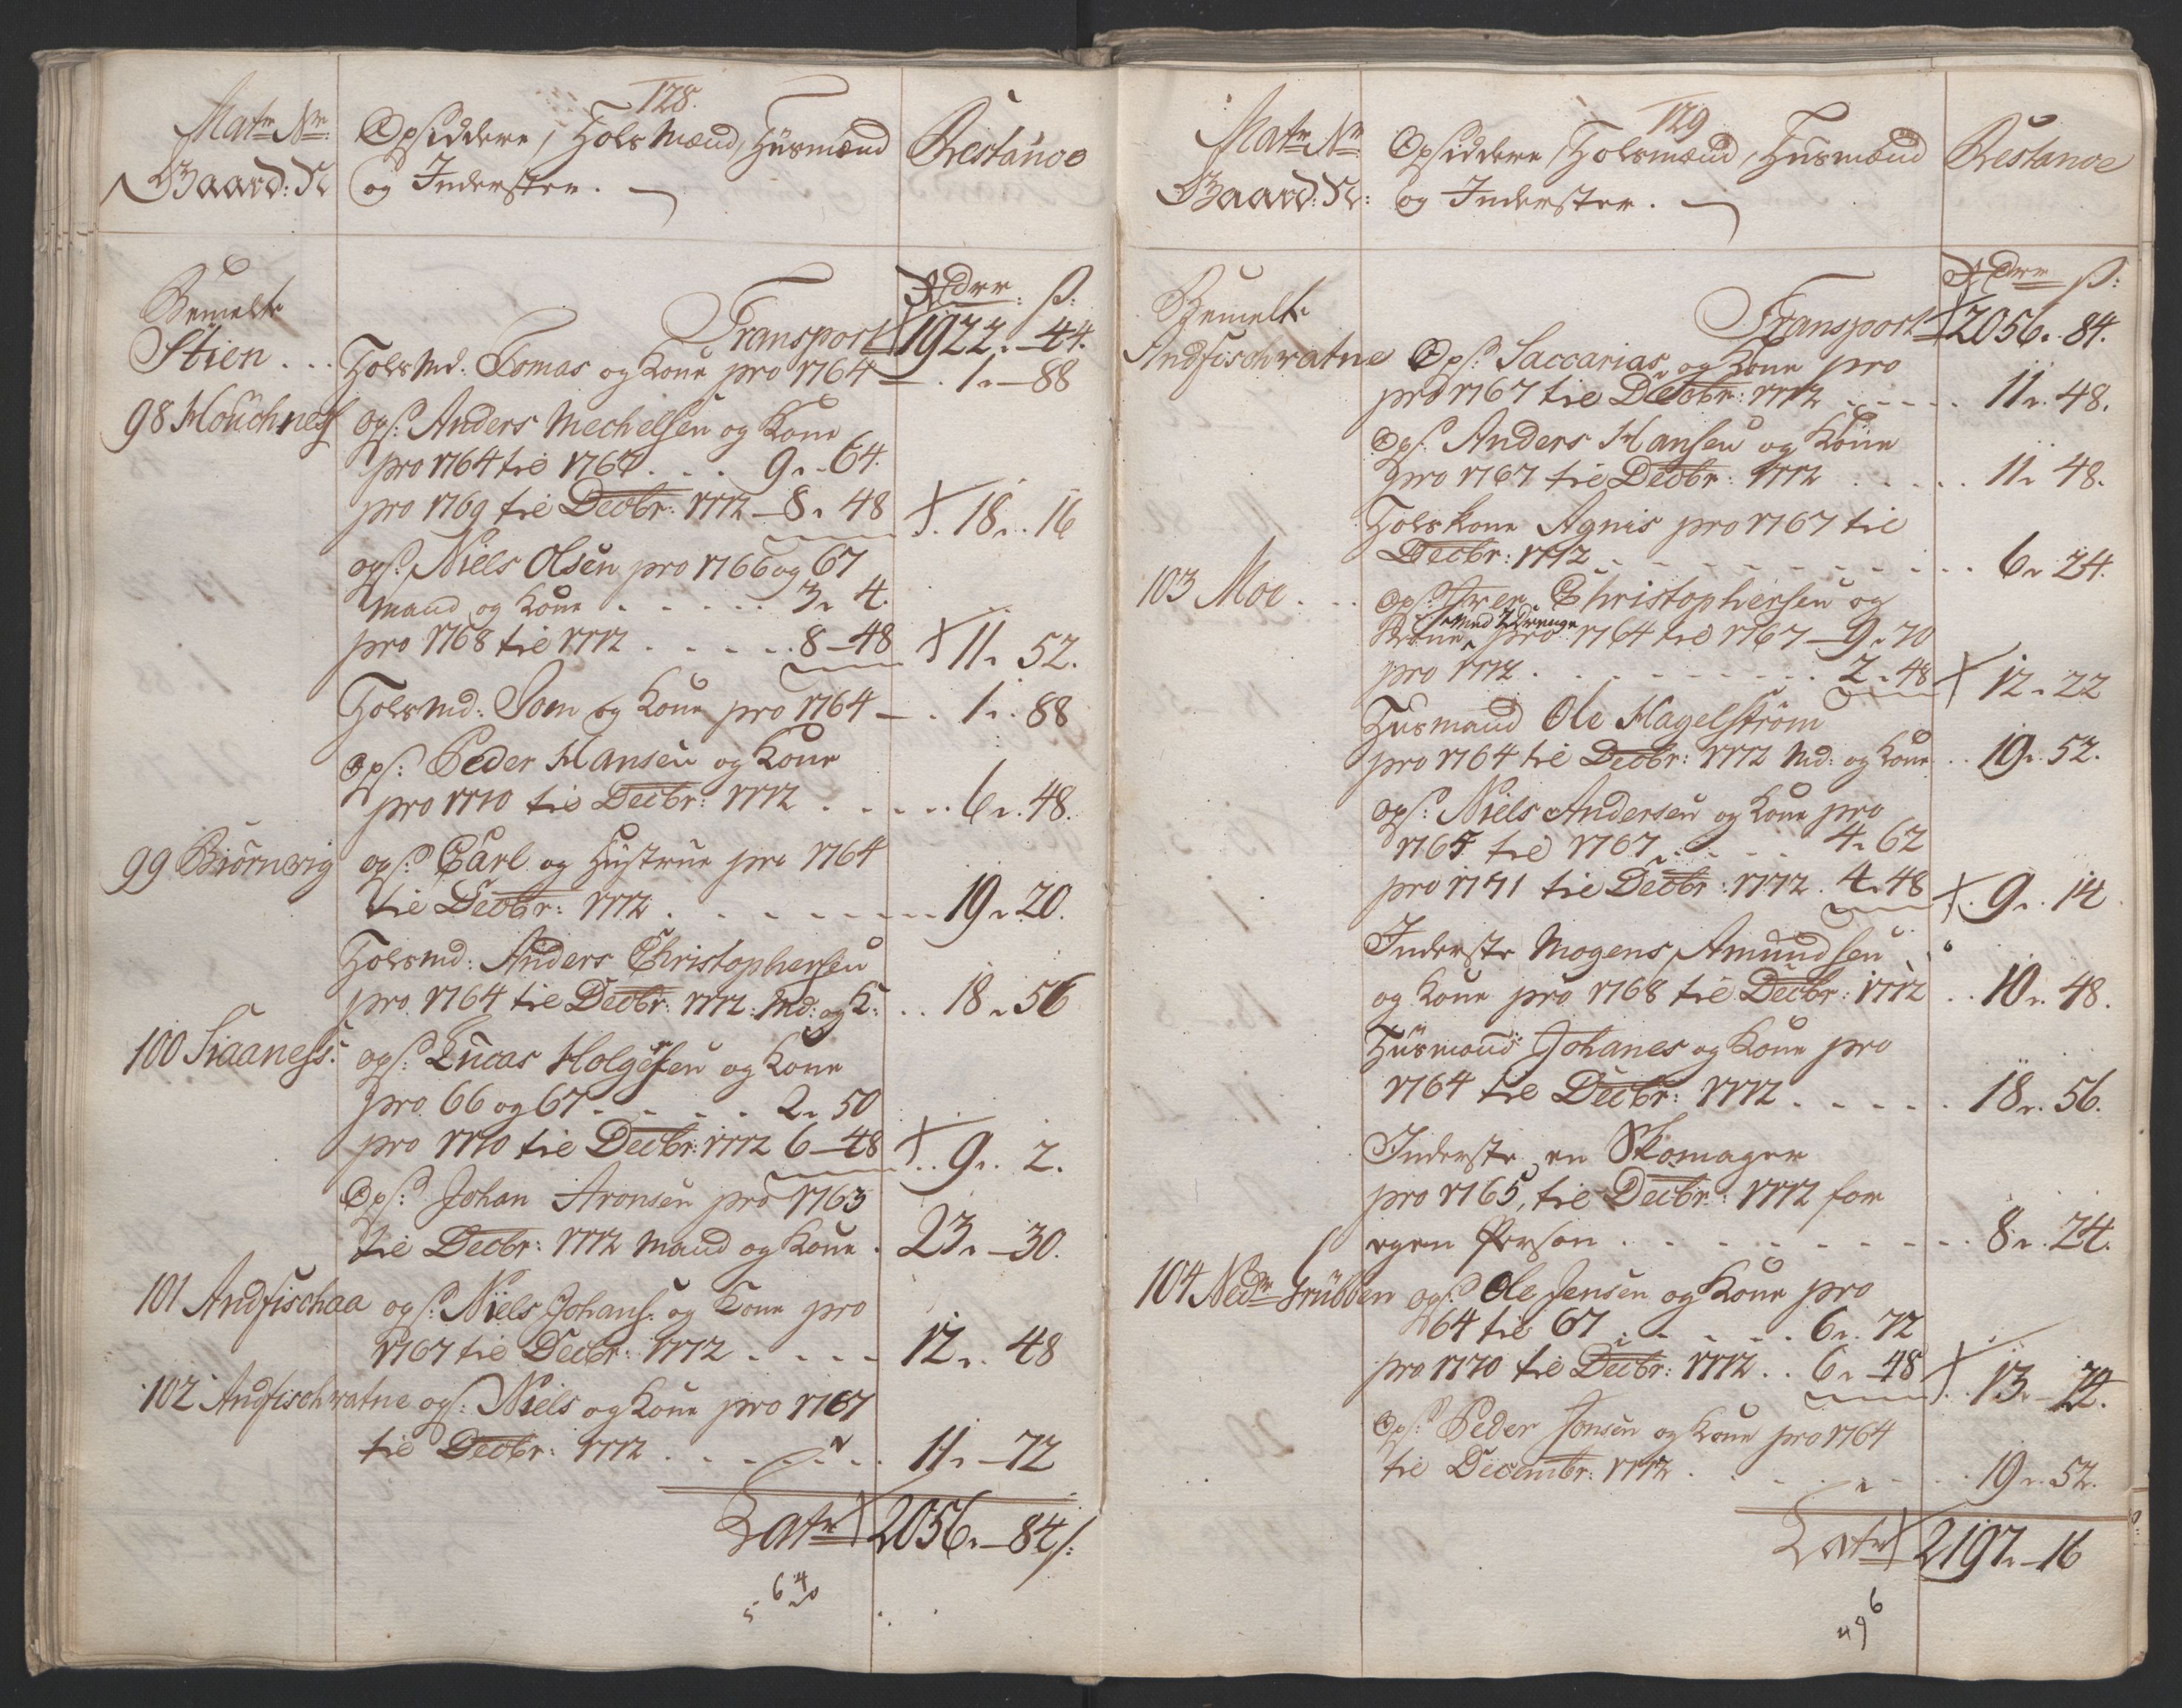 128.
Matr Nr: Opsiddere, Folsmænd, Husmænd Restance
Gaard: N og Inderster.
Rdrr: s:
Bemelte Transport 1922 - 44.
Stien . . . Folsmd: Tomas og Kone pro 1764 - . 1 - 88
98 Houchness ops: Anders Mechelsen og Kone
pro 1764 til 1767 . . . 9 - 64.
pro 1769 til Decbr: 1772 - 8 - 48 18 - 16
ops: Niels Olsen pro 1766 og 67
Mand og Kone . . . . . 3 - 4.
pro 1768 til 1772 . . . . . 8 - 48 11 - 52.
Folsmd: Jom og Kone pro 1764 - . 1 - 88
Ops: Peder Hansen og Kone
pro 1770 til Decbr: 1772 . . . . . 6 - 48.
99 Biörnvig ops: Carl og Hustrue pro 1764
til Decbr: 1772 . . . . . . . . 19 - 20.
Folsmd: Anders Christophersen
pro 1764 til Decbr: 1772: Md: og K: . . 18 - 56
100 Siaaness: ops: Lucas Holgersen og Kone
pro 66 og 67 . . . . . 2 - 50
pro 1770 til Decbr: 1772 6 - 48 9 - 2.
Ops: Johan Aronsen pro 1763
til Decbr: 1772 Mand og Kone . 23 - 30.
101 Andfischaa ops: Niels Johans: og Kone pro
1767 til Decbr: 1772 . . . . 12 - 48
102 Andfischvatne ops: Niels og Kone pro 1767
til Decbr: 1772 . . . . . . 11 - 72
Latr 2056 - 84 s:
129
Matr Nr Opsiddere, Folsmænd, Husmænd Restance
Gaard: N: og Inderster.
Rdrr s:
Bemelte Transport 2056 - 84.
Andfischvatne Ops: Saccarias og Kone pro
pro 1767 til Decbr: 1772 . . . . . 11 - 48.
Ops: Anders Hansen og Kone
pro 1767 til Decbr: 1772 . . . . . 11 - 48.
Fols Kone Agnis pro 1767 til
Decbr: 1772 . . . . . . . . . . . 6 - 24.
103 Moe . . . Ops: Iver Christophersen og
Kone med 2 Drenge pro 1764 til 1767 - 9 - 70
pro 1772 . . . . . . . . . 2 - 48 12 - 22
Husmand Ole Hagelström
pro 1764 til Decbr: 1772 Md: og Kone . . 19 - 52.
ops: Niels Andersen og Kone pro
1765 til 1767 . . . . . 4 - 62
pro 1771 til Decbr: 1772 . 4 - 48 9 - 14
Inderste Mogens Amundsen
og Kone pro 1768 til Decbr: 1772 . . 10 - 48.
Husmand Johanes og Kone pro
1764 til Decbr: 1772 . . . . . 18 - 56.
Inderste, en Skomager
pro 1765, til Decbr: 1772 for
egen Person . . . . . . . . . . 8 - 24.
104 Nedr Grübben ops: Ole Jensen og Kone pro
64 til 67 . . . . . . 6 - 72
pro 1770 til Decbr: 1772 . . 6 - 48 13 - 24.
Ops: Peder Jonsen og Kone pro 1764
til Decembr: 1772 . . . . . . . . 19 - 52.
Latr 2197 - 16